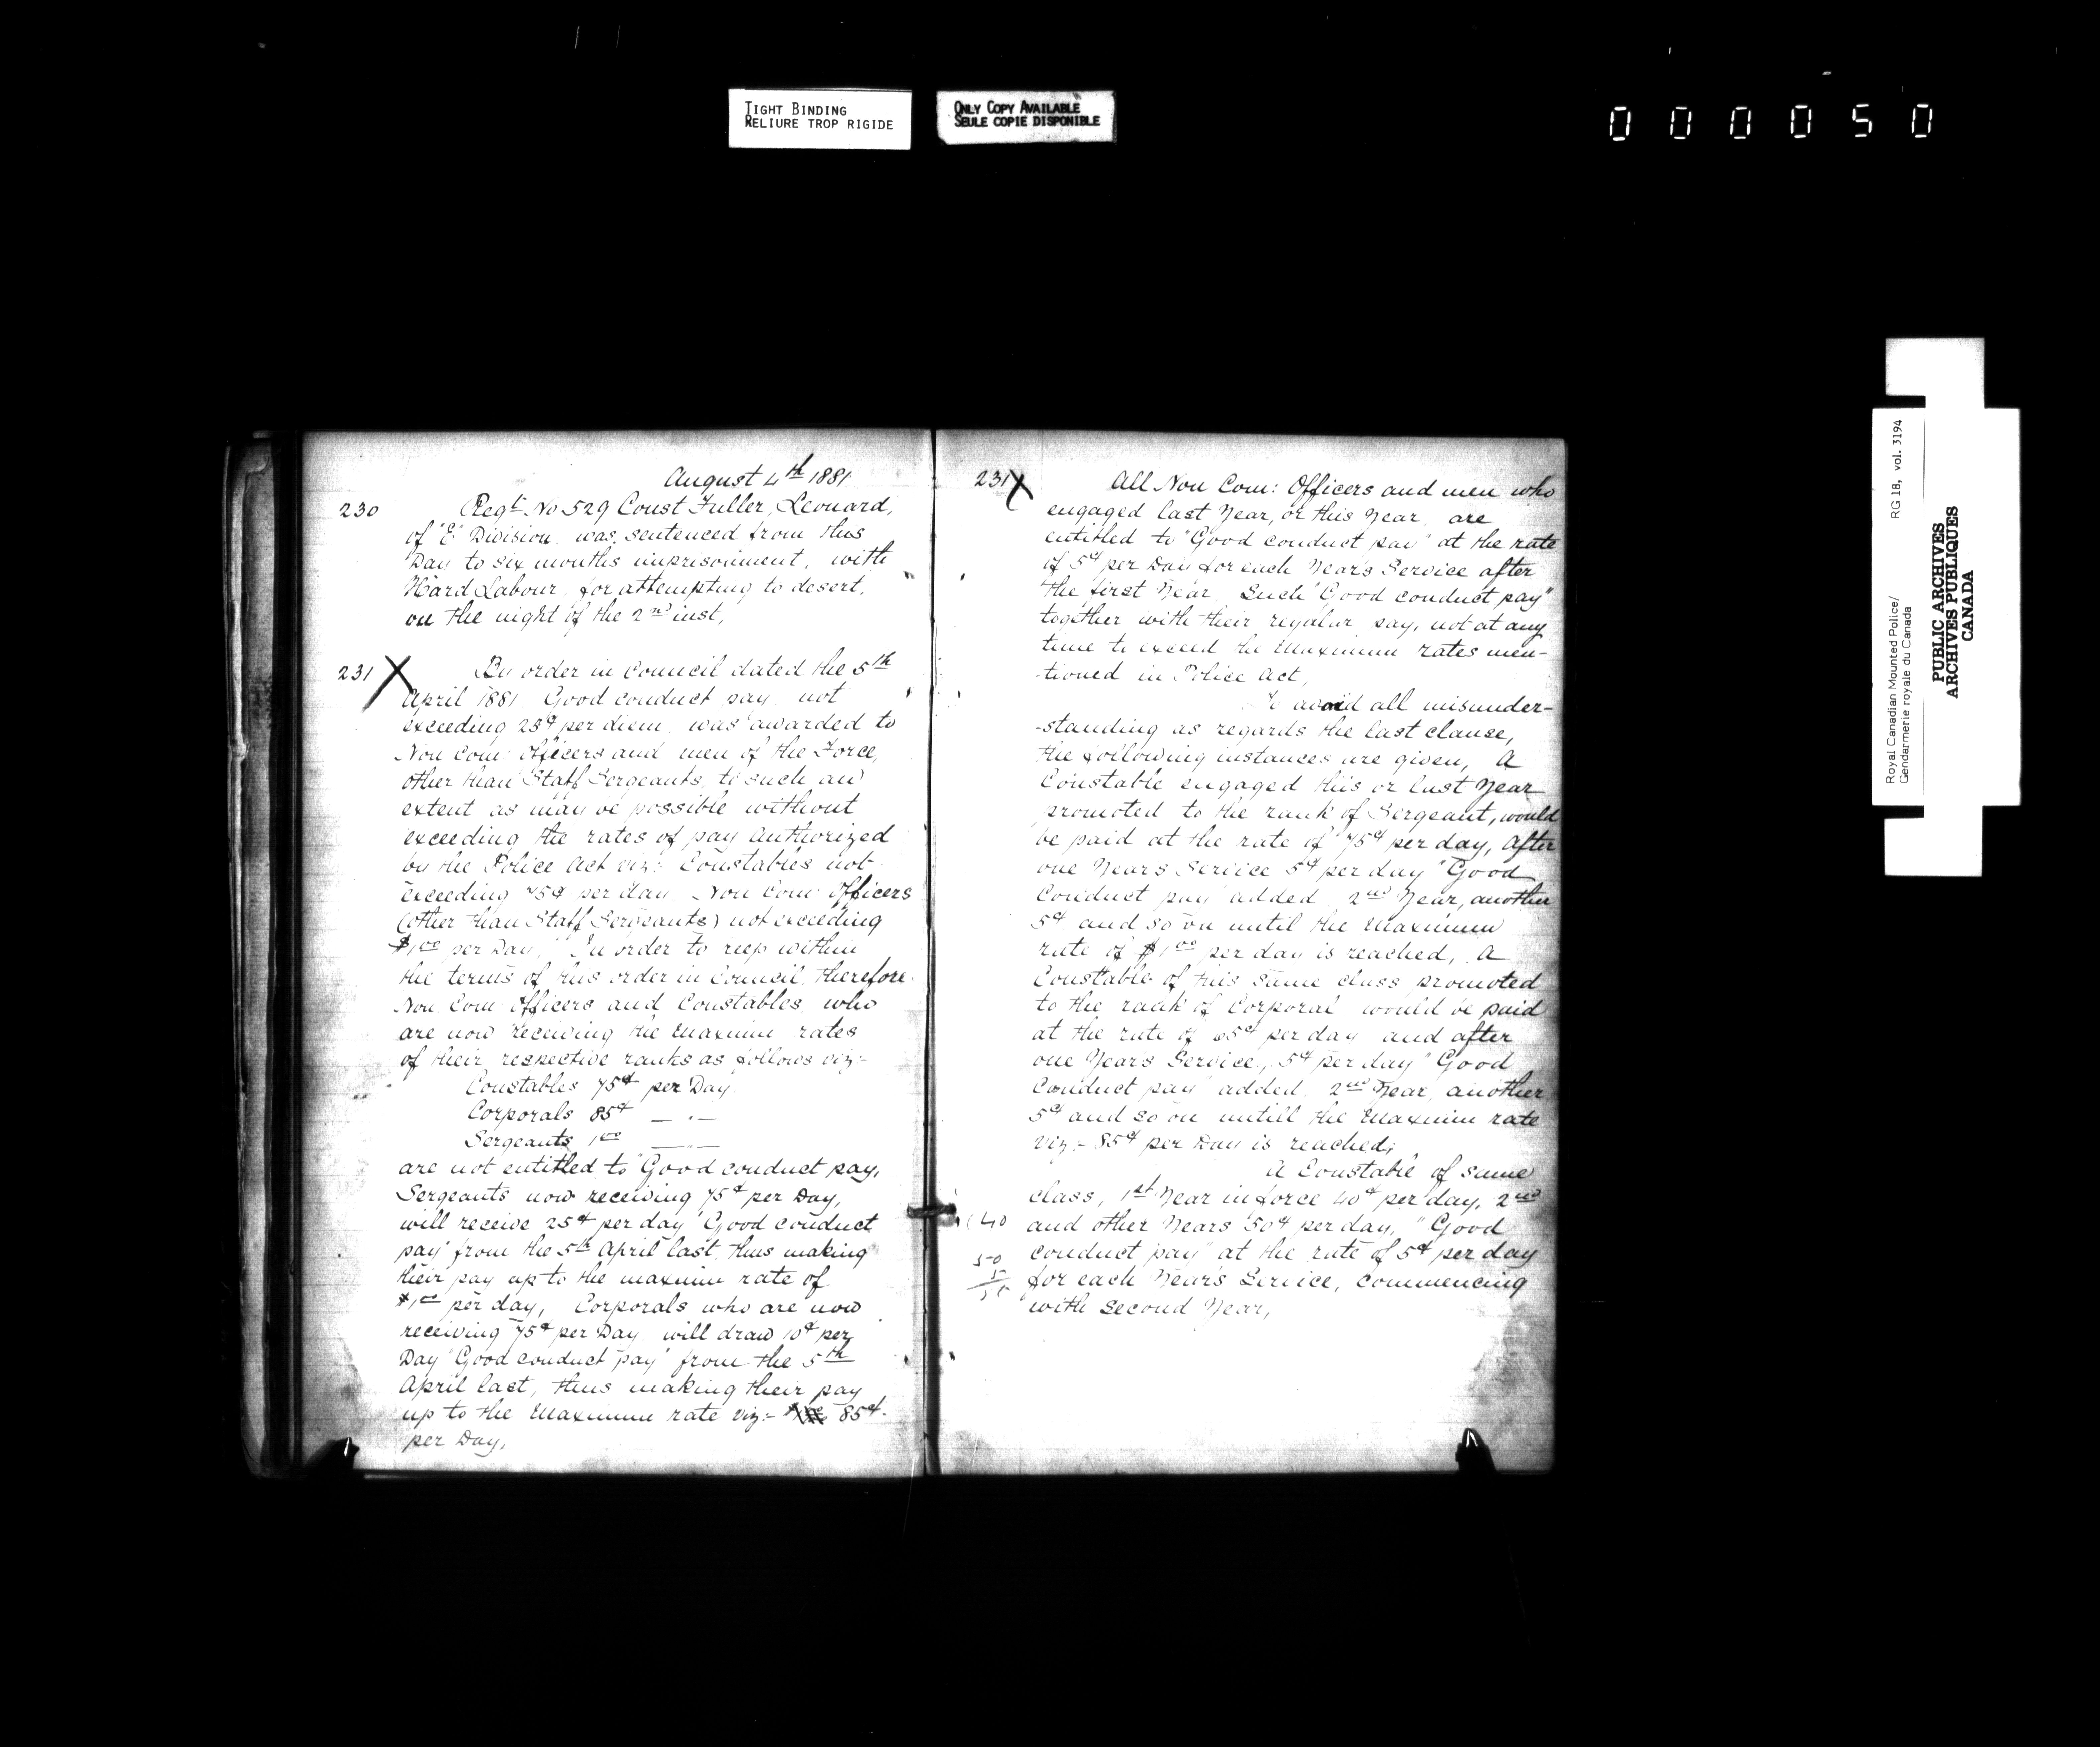 TIGHT BINDING
RELIURE TROP RIGIDE
ONLY COPY AVAILABLE
SEULE COPIE DISPONIBLE
000050
August 4th 1881
230 Regt. No 529 Const Fuller, Leonard,
of "E" Division was sentenced from this
Day to six months imprisonment, with
Hard Labour, for attempting to desert,
on the night of the 2nd inst,
231 X By order in Council dated the 5th
April 1881 Good conduct pay not
exceeding 25¢ per diem was awarded to
Non Com: Officers and men of the Force,
other than Staff Sergeants, to such an
extent as may be possible without
exceeding the rates of pay authorized
by the Police Act viz:- Constables not
exceeding 75¢ per day Non Com: Officers
(other than Staff Sergeants) not exceeding
$1.00 per Day," In order to keep within
the terms of this order in Council therefore
Non Com Officers and Constables who
are now receiving the Maximum rates
of their respective ranks as follows viz:-
Constables 75¢ per Day.
Corporals 85¢ — " —
Sergeants 1.00 — —
are not entitled to "Good conduct pay,
Sergeants now receiving 75¢ per Day,
will receive 25¢ per day "Good conduct
pay" from the 5th April last, thus making
their pay up to the maximum rate of
$1.00 per day, Corporals who are now
receiving 75¢ per Day will draw 10¢ per
Day "Good conduct pay" from the 5th
April last, thus making their pay
up to the Maximum rate viz:- 85¢
per Day,
231 X All Non Com: Officers and men who
engaged last Year, or this Year are
entitled to "Good conduct pay" at the rate
of 5¢ per Day for each Year's Service after
the first Year. Such "Good conduct pay"
together with their regular pay, not at any
time to exceed the Maximum rates men-
-tioned in Police Act,
To avoid all misunder-
-standing as regards the last clause,
the following instances are given, A
Constable engaged this or last Year
promoted to the rank of Sergeant, would
be paid at the rate of 75¢ per day, After
one Years Service 5¢ per day "Good
Conduct pay" added 2nd Year, another
5¢ and so on until the Maximum
rate of $1.00 per day is reached, A
Constable of this same class promoted
to the rank of Corporal would be paid
at the rate of 65¢ per day and after
one Years Service, 5¢ per day "Good
Conduct pay" added. 2nd Year another
5¢ and so on untill the Maximum rate
viz:- 85¢ per Day is reached;
A Constable of same
class, 1st Year in force 40¢ per day, 2nd
40 and other Years 50¢ per day, "Good
conduct pay" at the rate of 5¢ per day
50
5
for each Year's Service, commencing
with second Year,
Royal Canadian Mounted Police/
Gendarmerie royale du Canada
RG 18, vol. 3194
PUBLIC ARCHIVES
ARCHIVES PUBLIQUES
CANADA